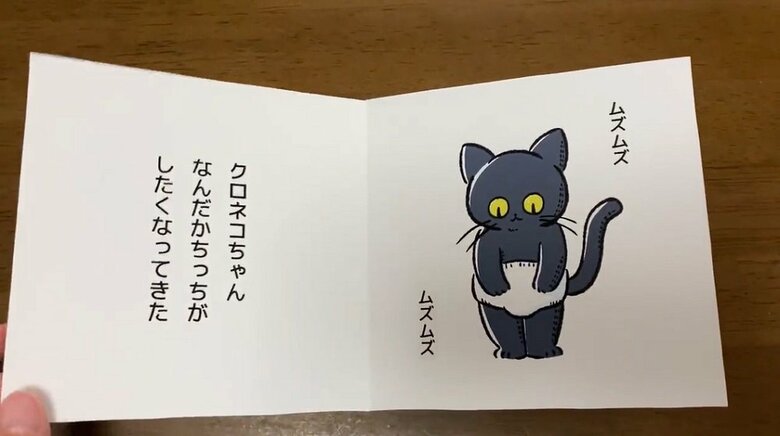 ムズムズ
ムズムズ
クロネコちゃん
なんだかちっちが
したくなってきた